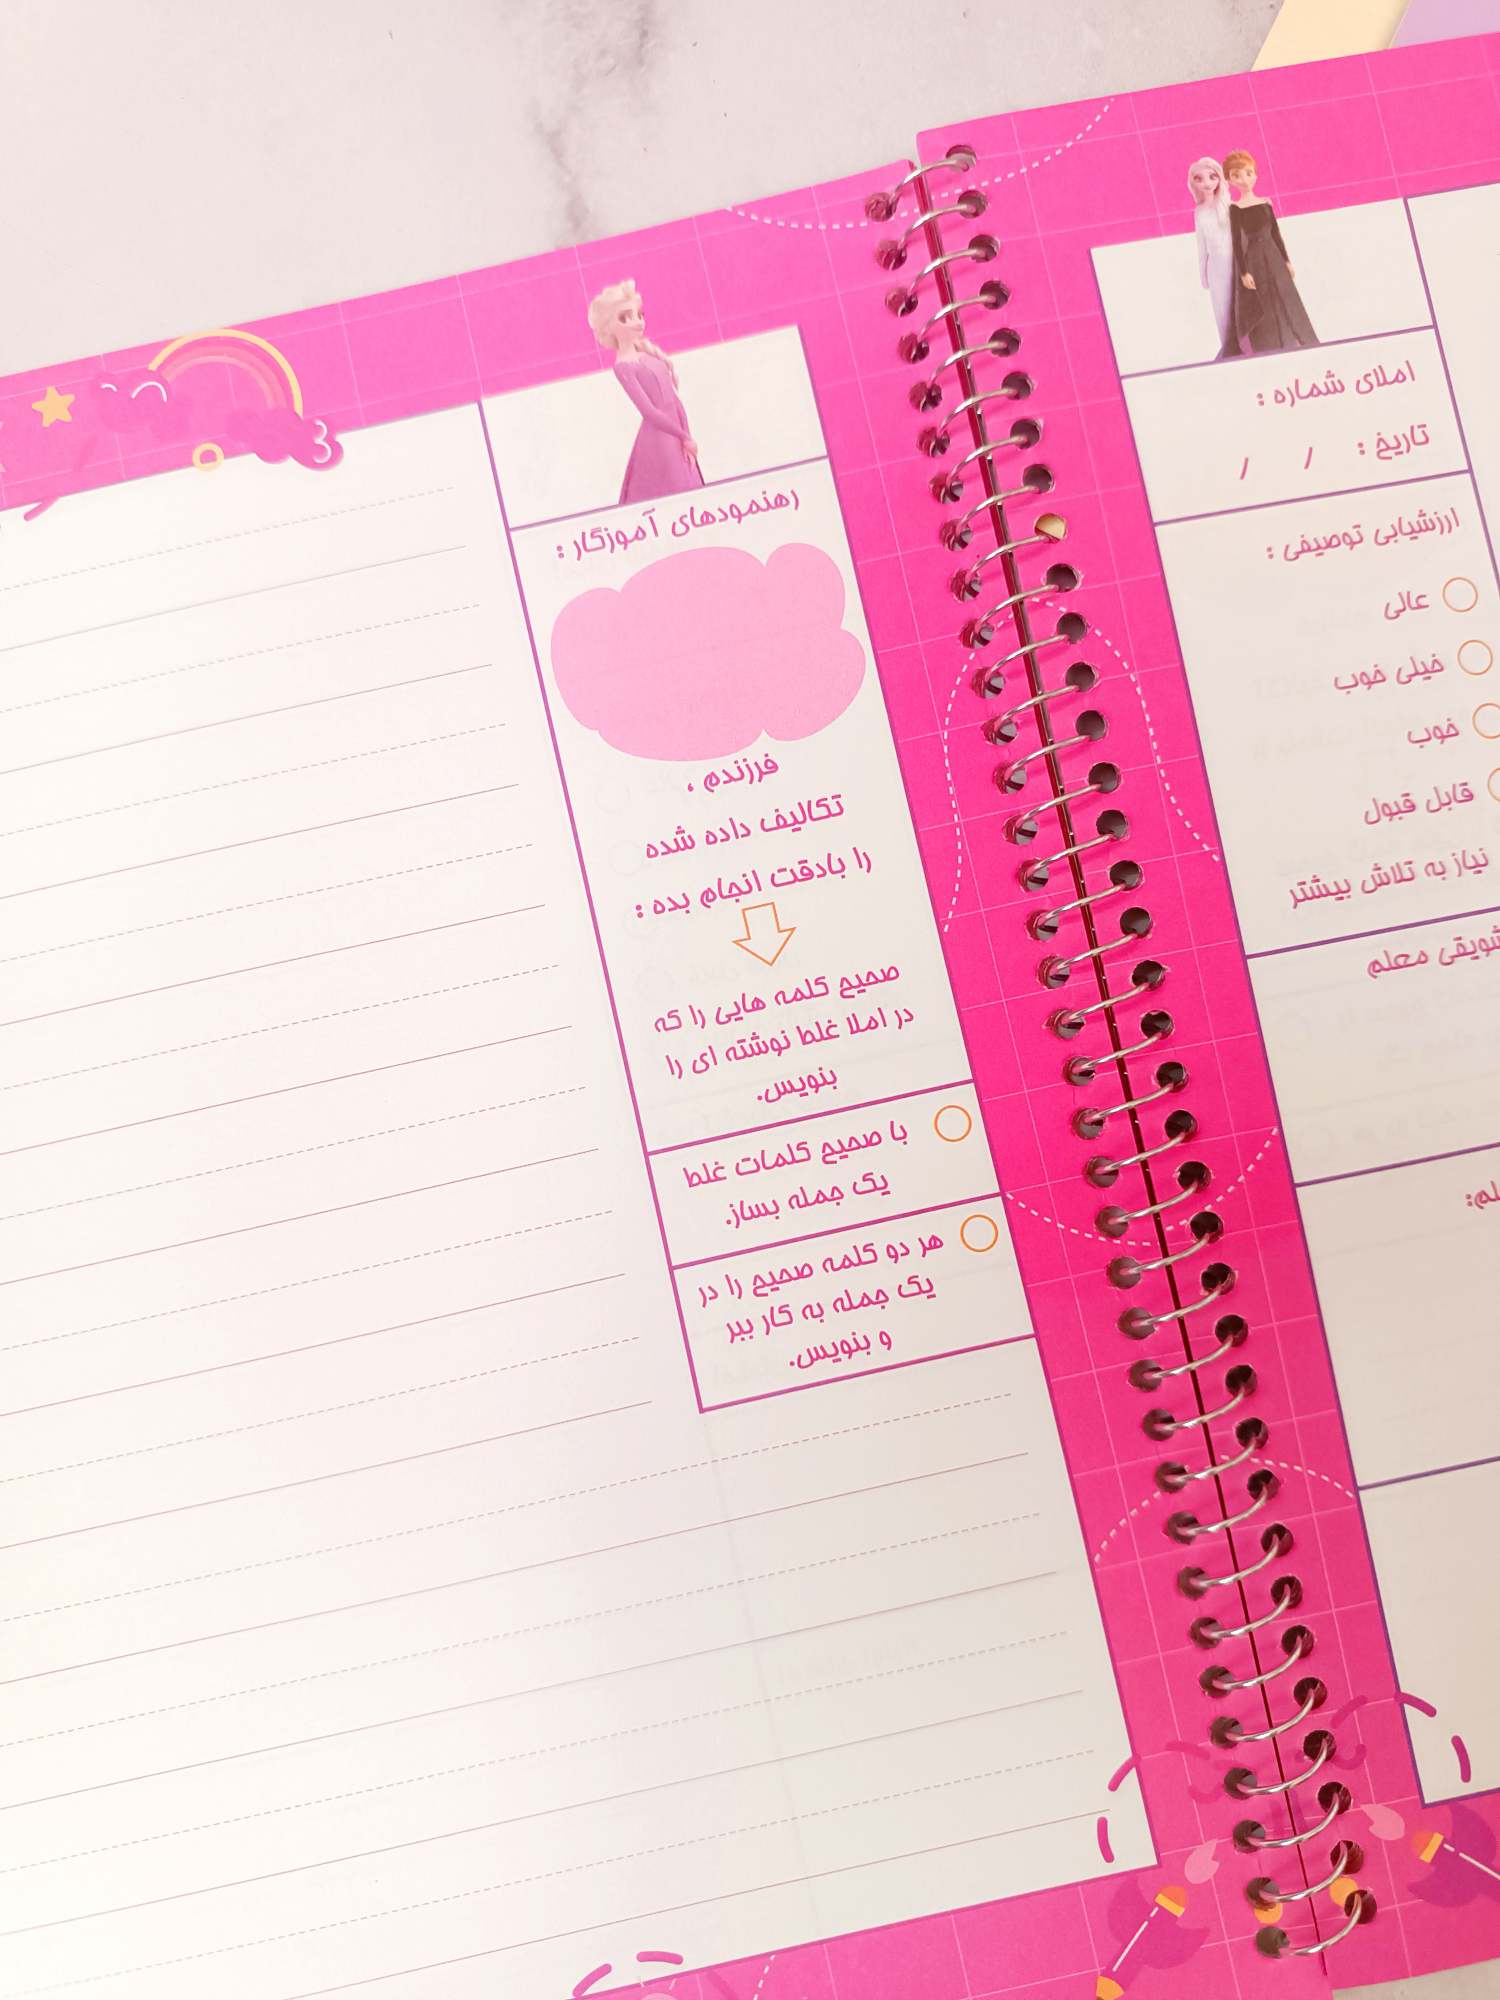 املای شماره :
تاریخ : / /
ارزشیابی توصیفی :
عالی
خیلی خوب
خوب
قابل قبول
نیاز به تلاش بیشتر
معلم
رهنمودهای آموزگار :
فرزندم ،
تکالیف داده شده
را بادقت انجام بده :
صحیح کلمه هایی را که
در املا غلط نوشته ای را
بنویس.
با صحیح کلمات غلط
یک جمله بساز.
هر دو کلمه صحیح را در
یک جمله به کار ببر
و بنویس.